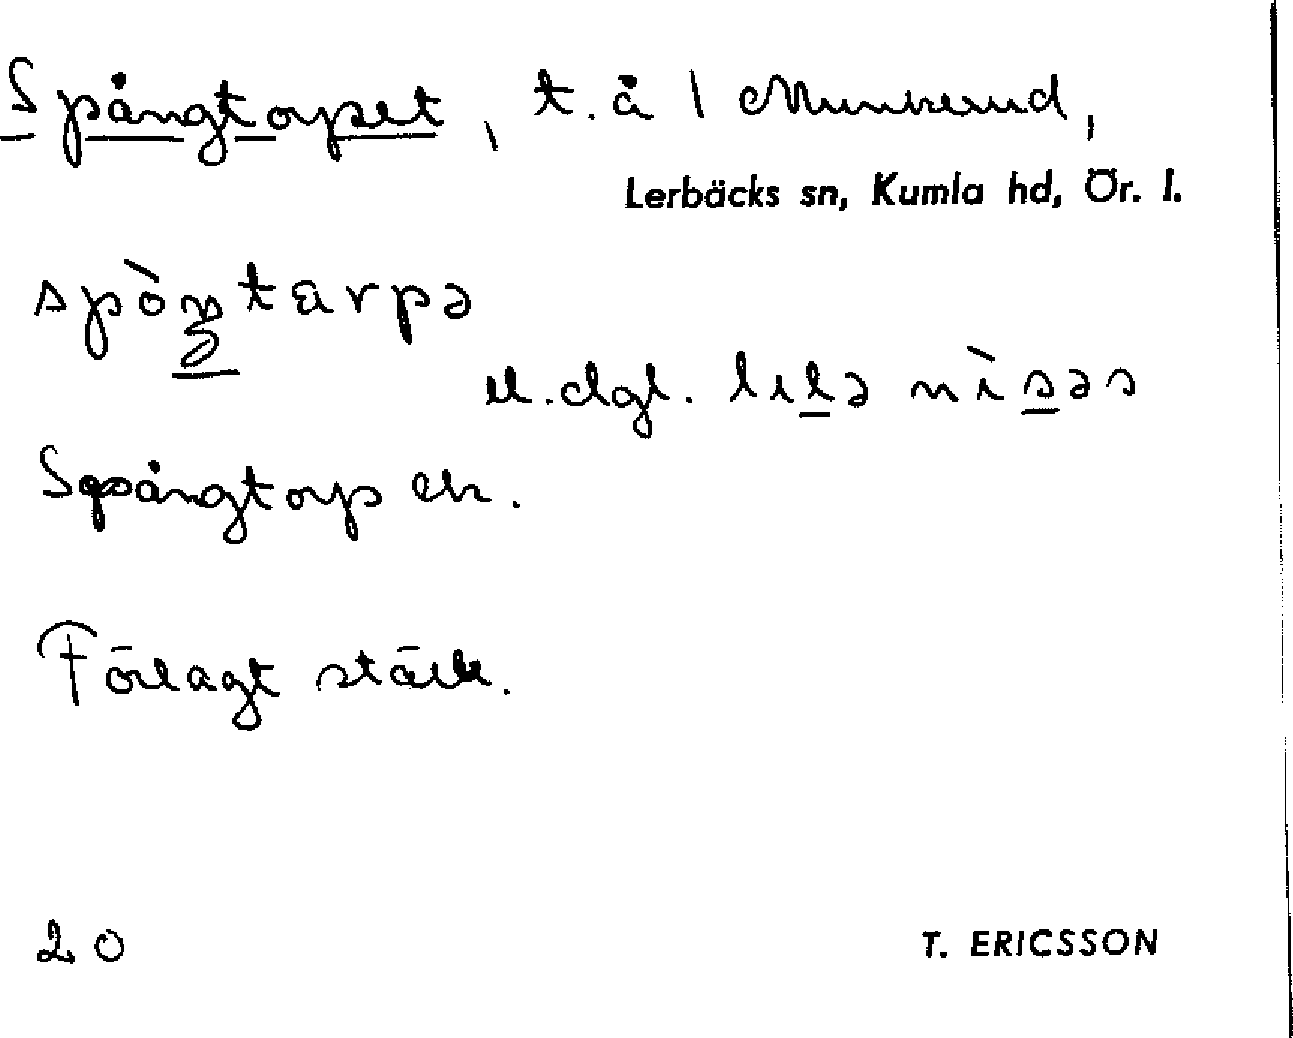 Spångtorpet, t. å 1 Munkerud,
Lerbäcks sn, Kumla hd, Ör. l.
spòŋtarpə
el. dgl. lilə nìsəs
Spångtorp ek.
Förlagt ställe.
20
T. ERICSSON